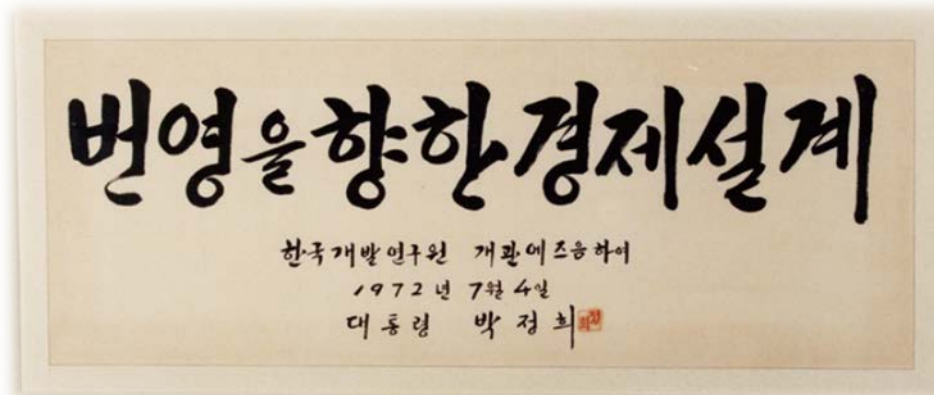 번영을 향한 경제설계
한국개발연구원 개관에 즈음하여
1972년 7월 4일
대통령 박정희